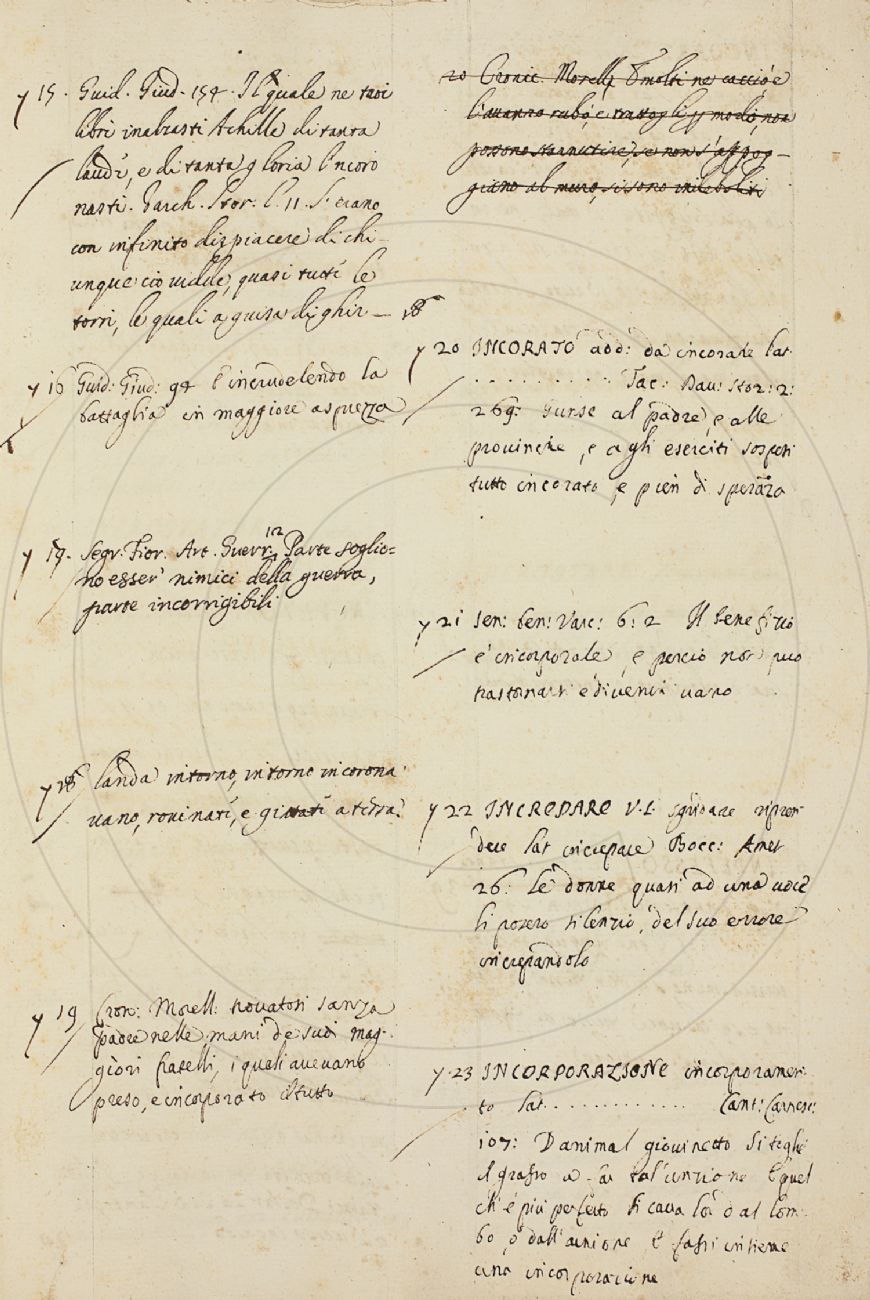 y 15. Guid. Giud. 154. Il quale ne tuoi
libri inalzasti Achille di tanta
laude, e di tanta gloria l'incoro
nasti. Varch. Stor. l. 11. S. erano
con infinito dispiacere di chi-
unque ciò vidde, quasi tutti le
torri, le quali a guisa di ghir — 18
y 16 Guid: Giud: 94 l'incrudelendo la
battaglia in maggiore asprezza
y 17. Segr. Fior. Art. Guerr. 12 Parte soglio=
no esser' nimici della guerra,
parte incorrigibili
y 18 landa intorno, intorno incorona
vano, rovinati, e gittati a terra.
y 19 Cron: Morell: trovatosi sanza
padre nelle mani de suoi mag-
giori fratelli, i quali avevano
preso, e incorporato il tutto
20 Cronic. Morell. molti ne cacciò e
l'avanzo rubò, e trattogli modo, non
possono starnutire, se non s'appog-
giano al muro, si sono indeboliti
y 20 INCORATO add: da incorare lat.
. . . . . . . . . . . Tac: Dav: stor: 2:
269: Giunse al padre, e alle
provincie, e agli eserciti sospesi
tutto incorato, e pien di speranza
y 21 Sen: ben: Varc: 6: 2 Il benefizio
è incorporale, e perciò non può
trastornarsi e divenir vano
y 22 INCREPARE V. L. sgridare ripren
dere lat increpare Bocc: Amet
26: Le donne quasi ad una voce
li posero silenzio, del suo errore
increpandolo
y. 23 INCORPORAZIONE incorporamen
to lat. . . . . . . . . . . . Cant: Carnesc:
107: D'animal giovinetto si toglie
il grasso a far tal'unzione E quel
ch'è più perfetto si cava lor dal lom-
bo, o dall'arnione E fassi insieme
una incorporazione